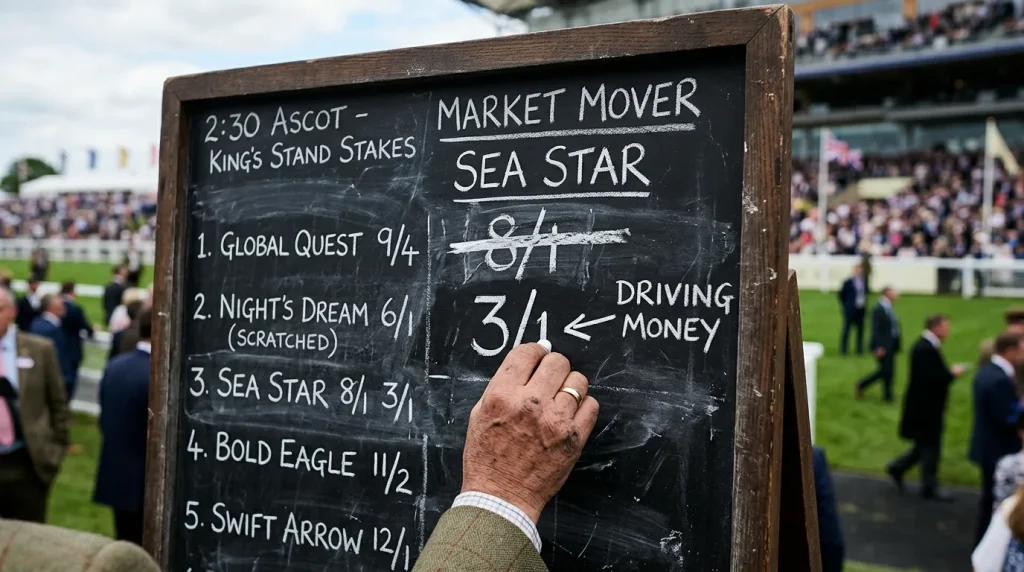 2:30 ASCOT –
KING'S STAND STAKES
1. GLOBAL QUEST 9/4
2. NIGHT'S DREAM 6/1
(SCRATCHED)
3. SEA STAR 8/1 3/1
4. BOLD EAGLE 11/2
5. SWIFT ARROW 12/1
MARKET MOVER
SEA STAR
8/1
3/1 ← DRIVING
MONEY